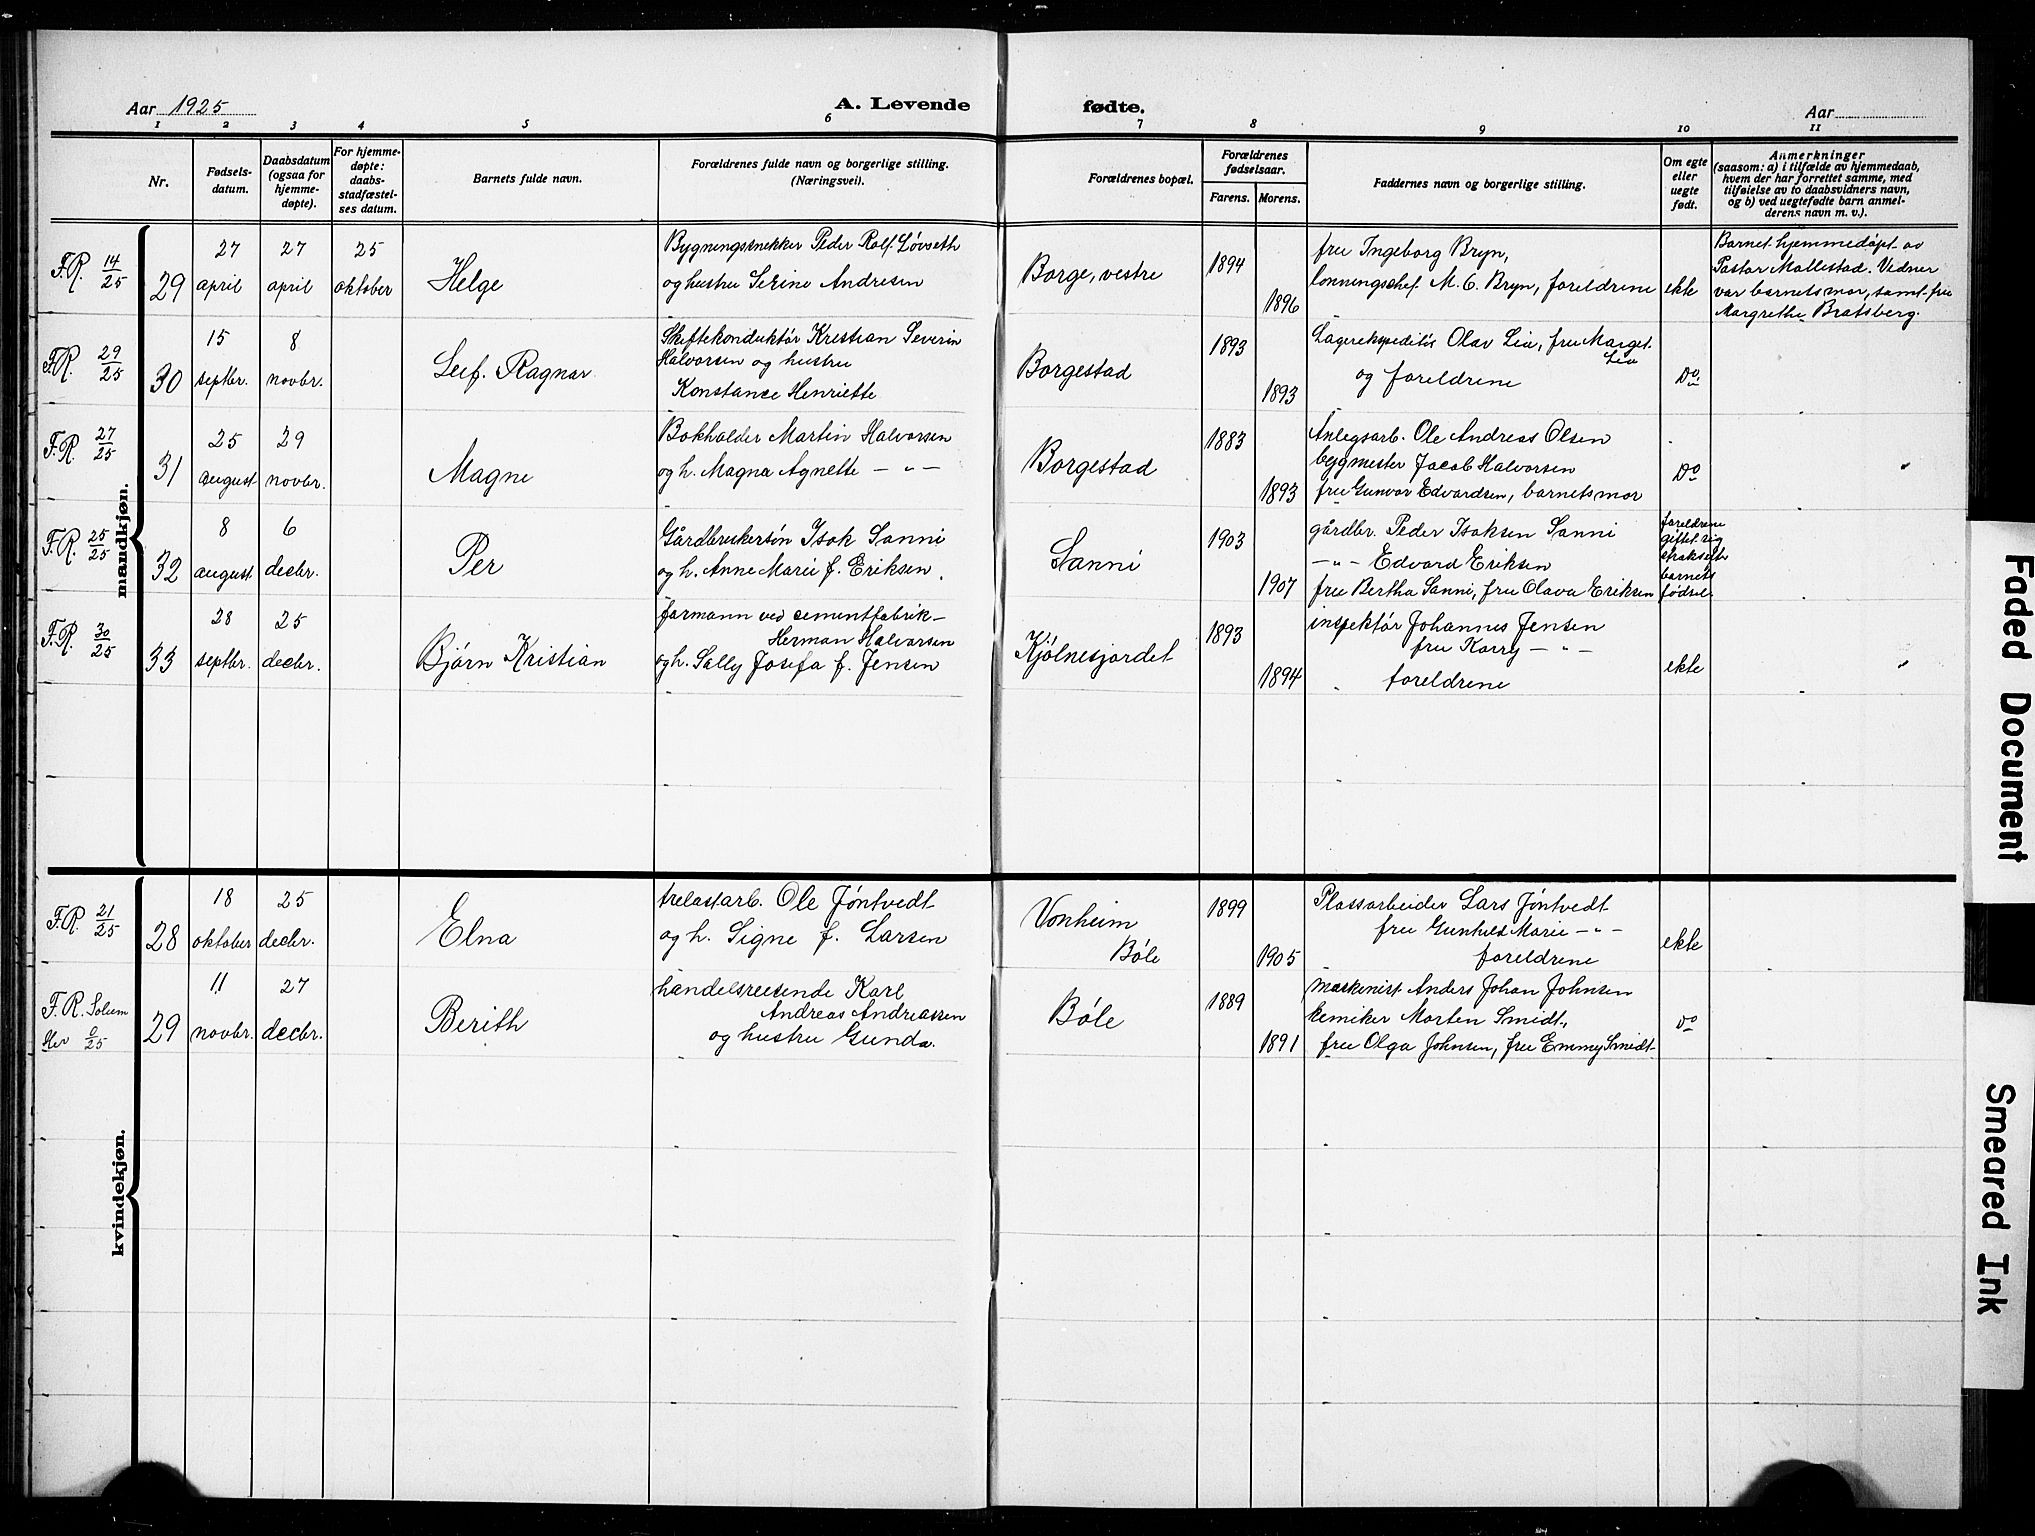 Aar 1925
A. Levende fødte.
Aar
1 2 3 4 5 6 7 8 9 10 11
Nr.
Fødsels-
datum.
Daabsdatum
(ogsaa for
hjemme-
døpte).
For hjemme-
døpte:
daabs-
stadfæstel-
ses datum.
Barnets fulde navn.
Forældrenes fulde navn og borgerlige stilling.
(Næringsvei).
Forældrenes bopæl.
Forældrenes
fødselsaar.
Farens. Morens.
Faddernes navn og borgerlige stilling.
Om egte
eller
uegte
født.
Anmerkninger
(saasom: a) i tilfælde av hjemmedaab,
hvem der har forrettet samme, med
tilføielse av to daabsvidners navn,
og b) ved uegtefødte barn anmel-
derens navn m. v.).
mandkjøn.
F.R. 14/25
29
27 april
27 april
25 oktober
Helge
Bygningssnekker Peder Rolf Løvseth
og hustru Serine Andresen
Borge, vestre
1894
1896
fru Ingeborg Bryn,
lønningschef M. C. Bryn, foreldrene
ekte
Barnet hjemmedøpt av
Pastor Mollestad. Vidner
var barnets mor, samt fru
Margrethe Bratsberg.
F.R. 29/25
30
15 septbr.
8 novbr.
Leif Ragnar
Skiftekonduktør Kristian Severin
Halvorsen og hustru
Konstance Henriette
Borgestad
1893
1893
Lagerekspeditør Olav Lia, fru Marget
Lia
og foreldrene
Do
F.R. 27/25
31
25 august
29 novbr.
Magne
Bokholder Martin Halvorsen
og h. Magna Agnette — " —
Borgestad
1883
1893
Anlegsarb. Ole Andreas Olsen
bygmester Jacob Halvorsen
fru Gunvor Edvardsen, barnets mor
Do
"
F.R. 25/25
32
8 august
6 decbr.
Per
Gårdbrukersøn Isak Sanni
og h. Anne Marie f. Eriksen.
Sanni
1903
1907
gårdbr. Peder Isaksen Sanni
— " — Edvard Eriksen
fru Bertha Sanni, fru Olava Eriksen
foreldrene
giftet sig
straks efter
barnets
fødsel
F.R. 30/25
33
28 septbr.
25 decbr.
Bjørn Kristian
formann ved cementfabrik—
Herman Halvorsen
og h. Sally Josefa f. Jensen
Kjølnesjordet
1893
1894
inspektør Johannes Jensen
fru Karry — " —
foreldrene
ekte
"
kvindekjøn.
F.R. 21/25
28
18 oktober
25 decbr.
Elna
trelastarb. Ole Jøntvedt
og h. Signe f. Larsen
Vonheim
Bøle
1899
1905
Plassarbeider Lars Jøntvedt
fru Gunhild Marie — " —
foreldrene
ekte
F.R. Solum
Her 0/25
29
11 novbr.
27 decbr.
Berith
handelsreisende Karl
Andreas Andreassen
og hustru Gunda.
Bøle
1889
1891
maskinist Anders Johan Johnsen
kemiker Morten Smidt,
fru Olga Johnsen, fru Emmy Smidt
Do
Faded Document
Smeared Ink